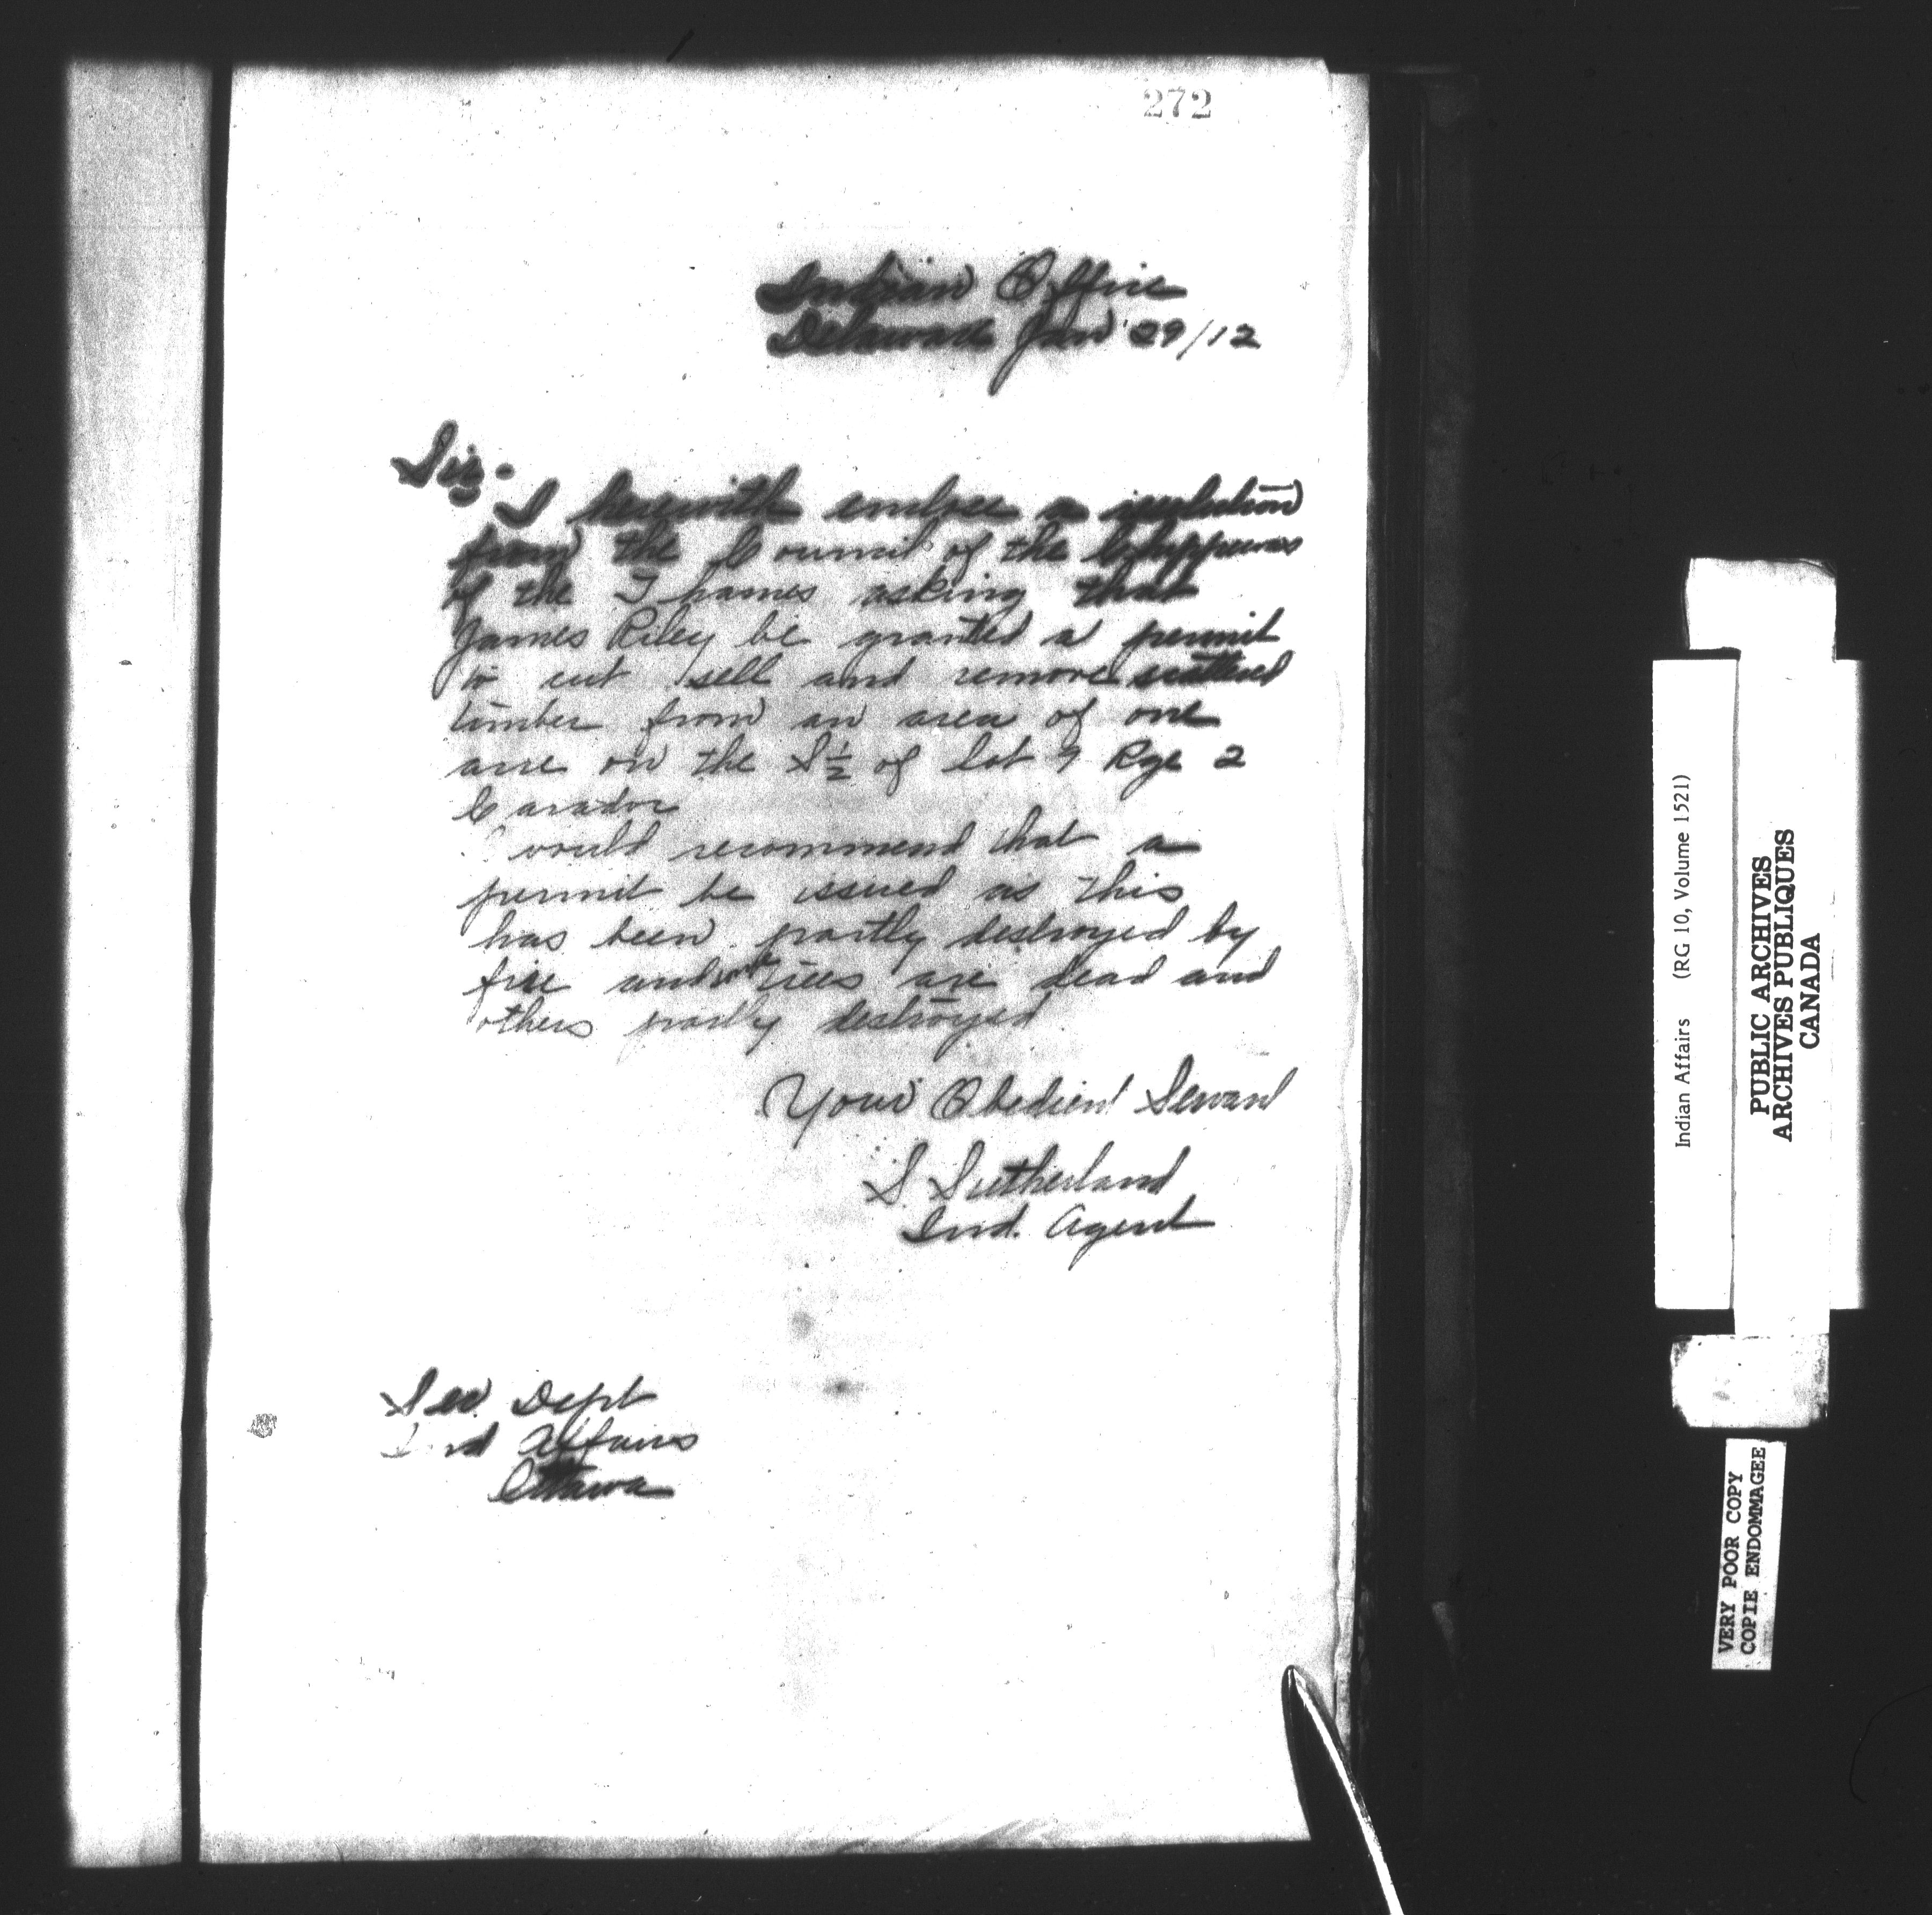 272
Indian Office
Delaware Jan 29/12
Sir-
I herewith enclose a resolution
from the Council of the Chippewas
of the Thames asking that
James Riley be granted a permit
to cut sell and remove scattered
timber from an area of one
acre on the S½ of Lot 9 Rge 2
Caradoc
would recommend that a
permit be issued as this
has been partly destroyed by
fire and trees are dead and
others partly destroyed
Your Obedient Servant
S. Sutherland
Ind. Agent
Sec. Dept
Ind Affairs
Ottawa
Indian Affairs (RG 10, Volume 1521)
PUBLIC ARCHIVES
ARCHIVES PUBLIQUES
CANADA
VERY POOR COPY
COPIE ENDOMMAGEE